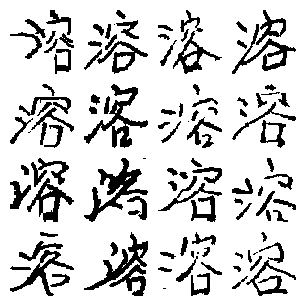 溶溶溶溶
溶溶溶溶
溶溶溶溶
溶溶溶溶